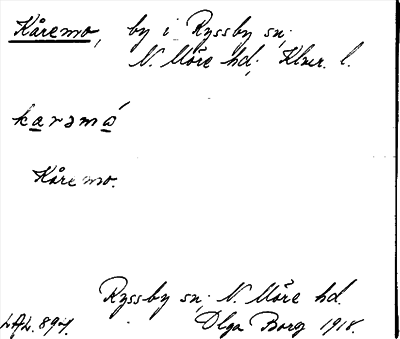 Kåremo, by i Ryssby sn;
N. Möre hd; Klmr. l.
karəmó
Kåremo.
Ryssby sn; N. Möre hd.
Olga Borg 1918.